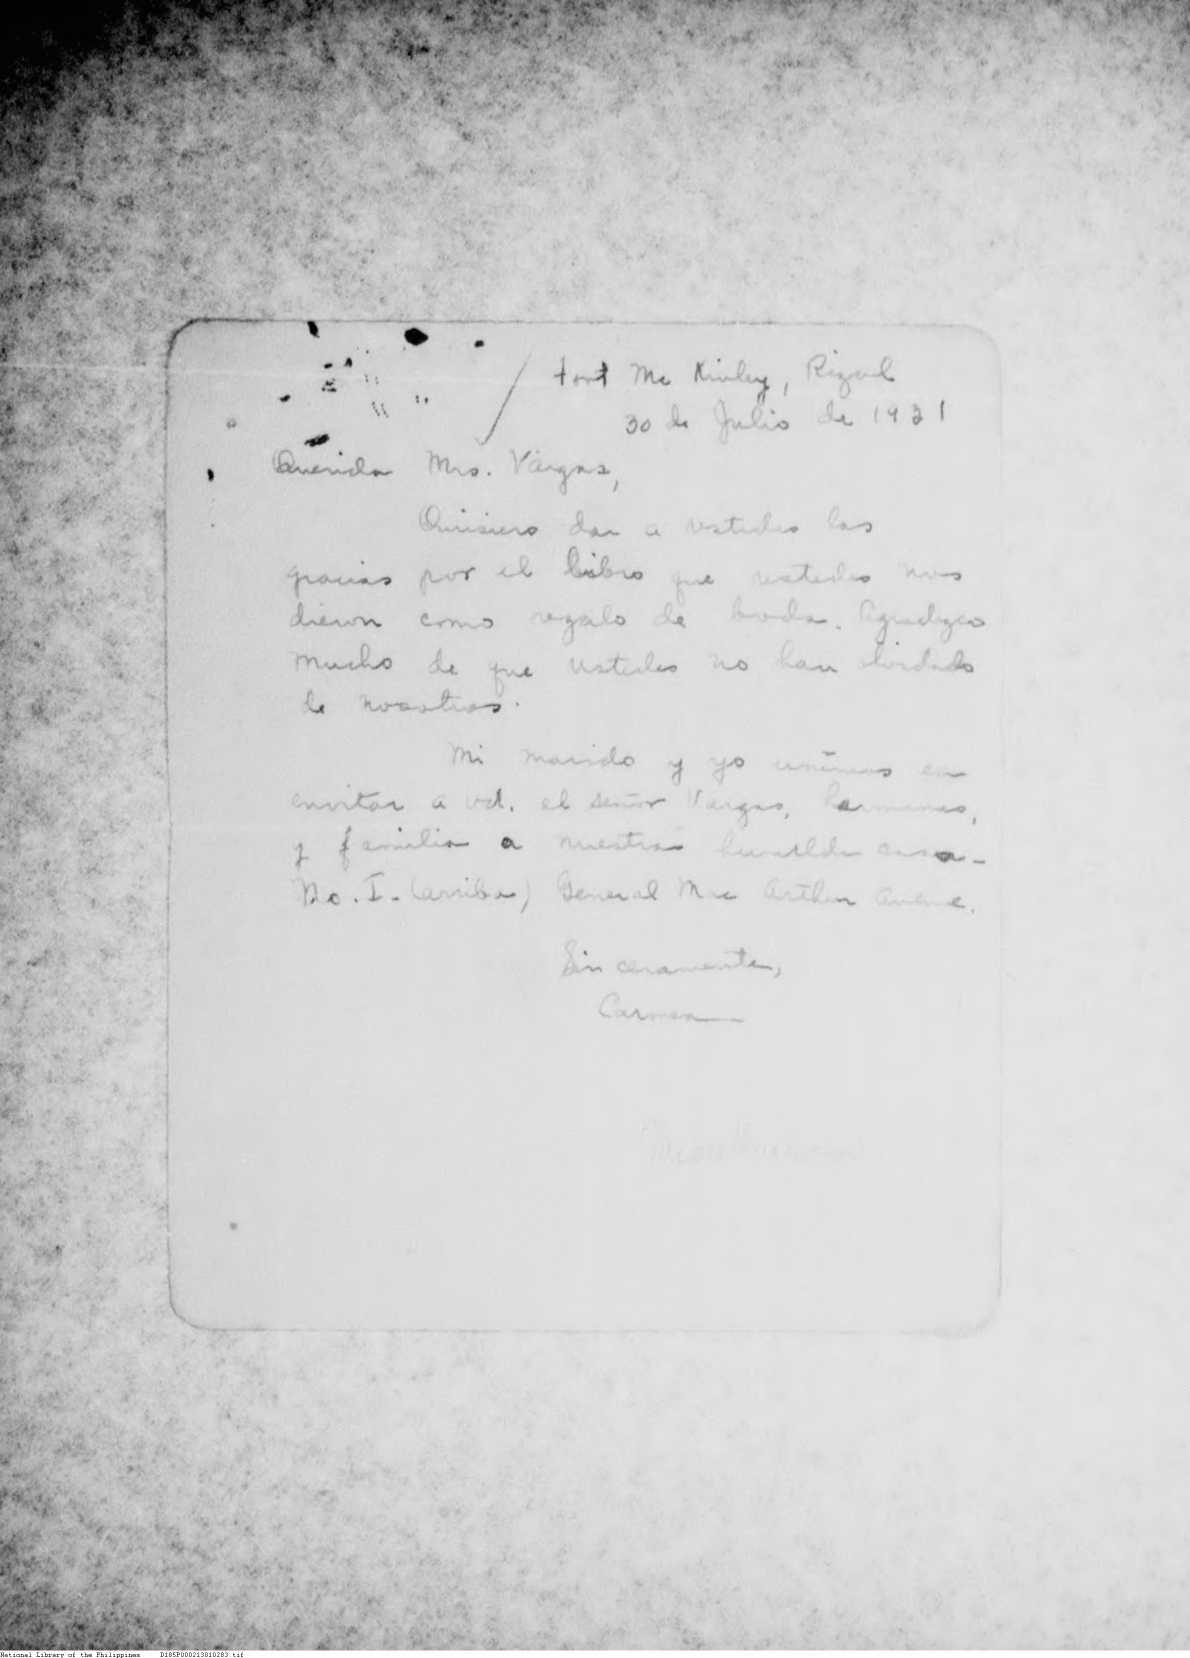 Fort Mc Kinley, Rizal
30 de Julio de 1921
Querida Mrs. Vargas,
Quisiero dar a ustedes las
gracias por el libro que ustedes nos
dieron como regalo de boda. Agradezco
mucho de que ustedes no han olvidado
de nosotros.
Mi marido y yo unimos en
envitar a vd. el señor Vargas, hermanas,
y familia a nuestra humilde casa-
No. I. (arriba) General Mac Arthur Avenue.
Sinceramente,
Carmen
National Library of the Philippines D185P000213810283.tif